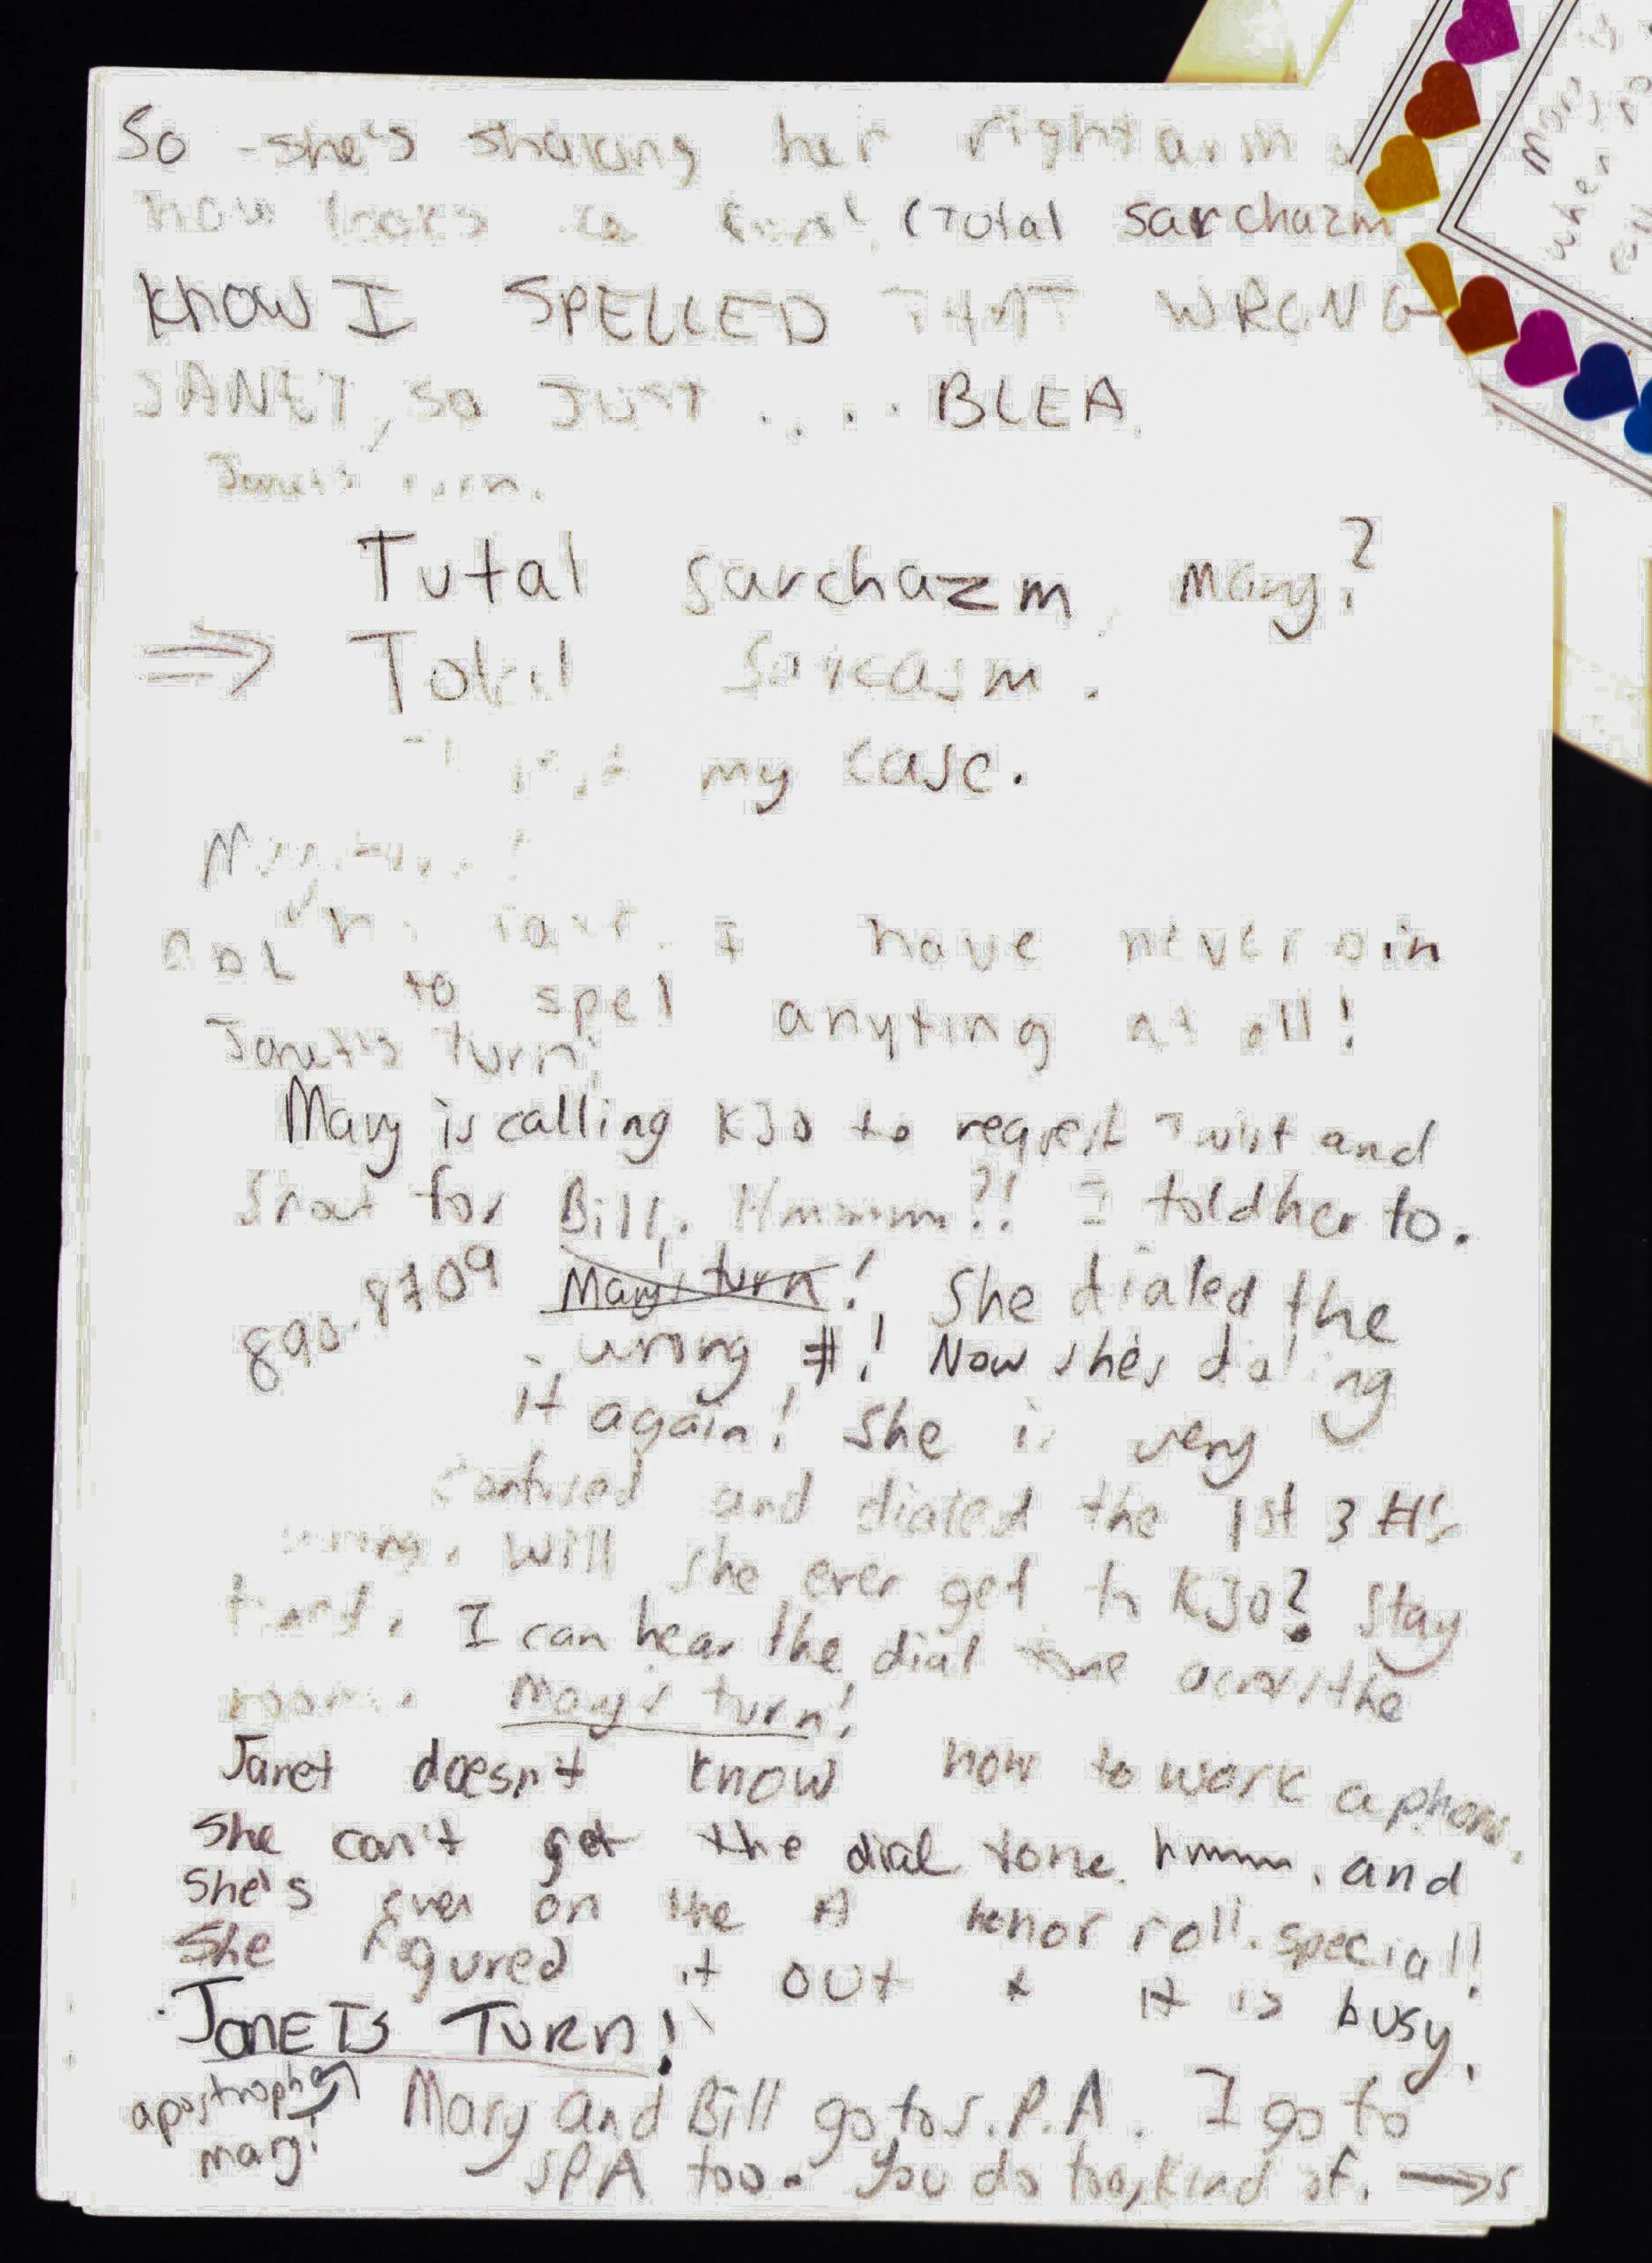 So she's shaking her right arm
now looks
(Total sarchazm
KNOW I SPELLED THAT WRONG
JANET, so JUST .... BLEA
Janet's turn.
Tutal sarchazm, mary?
⇒ Total sarcasm.
I rest my case.
I have never bin
ABL to spel anyting at all!
Janet's turn!
Mary is calling KJO to request Twist and
Shout for Bill. Hmmmm?! I told her to.
890-8709 Mary's turn! She dialed the
wrong #! Now she's dialing
it again! She is very
confused and dialed the 1st 3 #'s
wrong. Will she ever get to KJO? Stay
tuned. I can hear the dial tone across the
room. Mary's turn!
Janet doesn't know how to work a phone.
She can't get the dial tone. hmmm. and
She's even on the A honor roll. special!
She figured it out & it is busy.
JanETS TURn!
apostrophe mary!
Mary and Bill go to S.P.A. I go to
SPA too. You do too, kind of. →